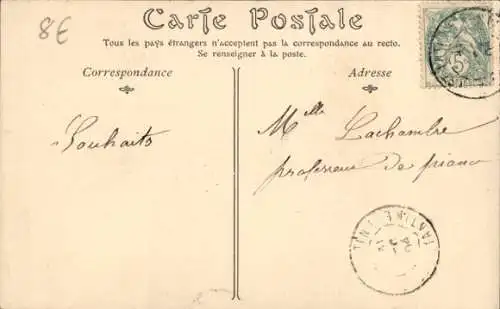 8€
Carte Postale
Tous les pays étrangers n'acceptent pas la correspondance au recto.
Se renseigner à la poste.
Correspondance
Adresse
Souhaits
Melle Lachambre
professeur de piano
5
TINTENIAC